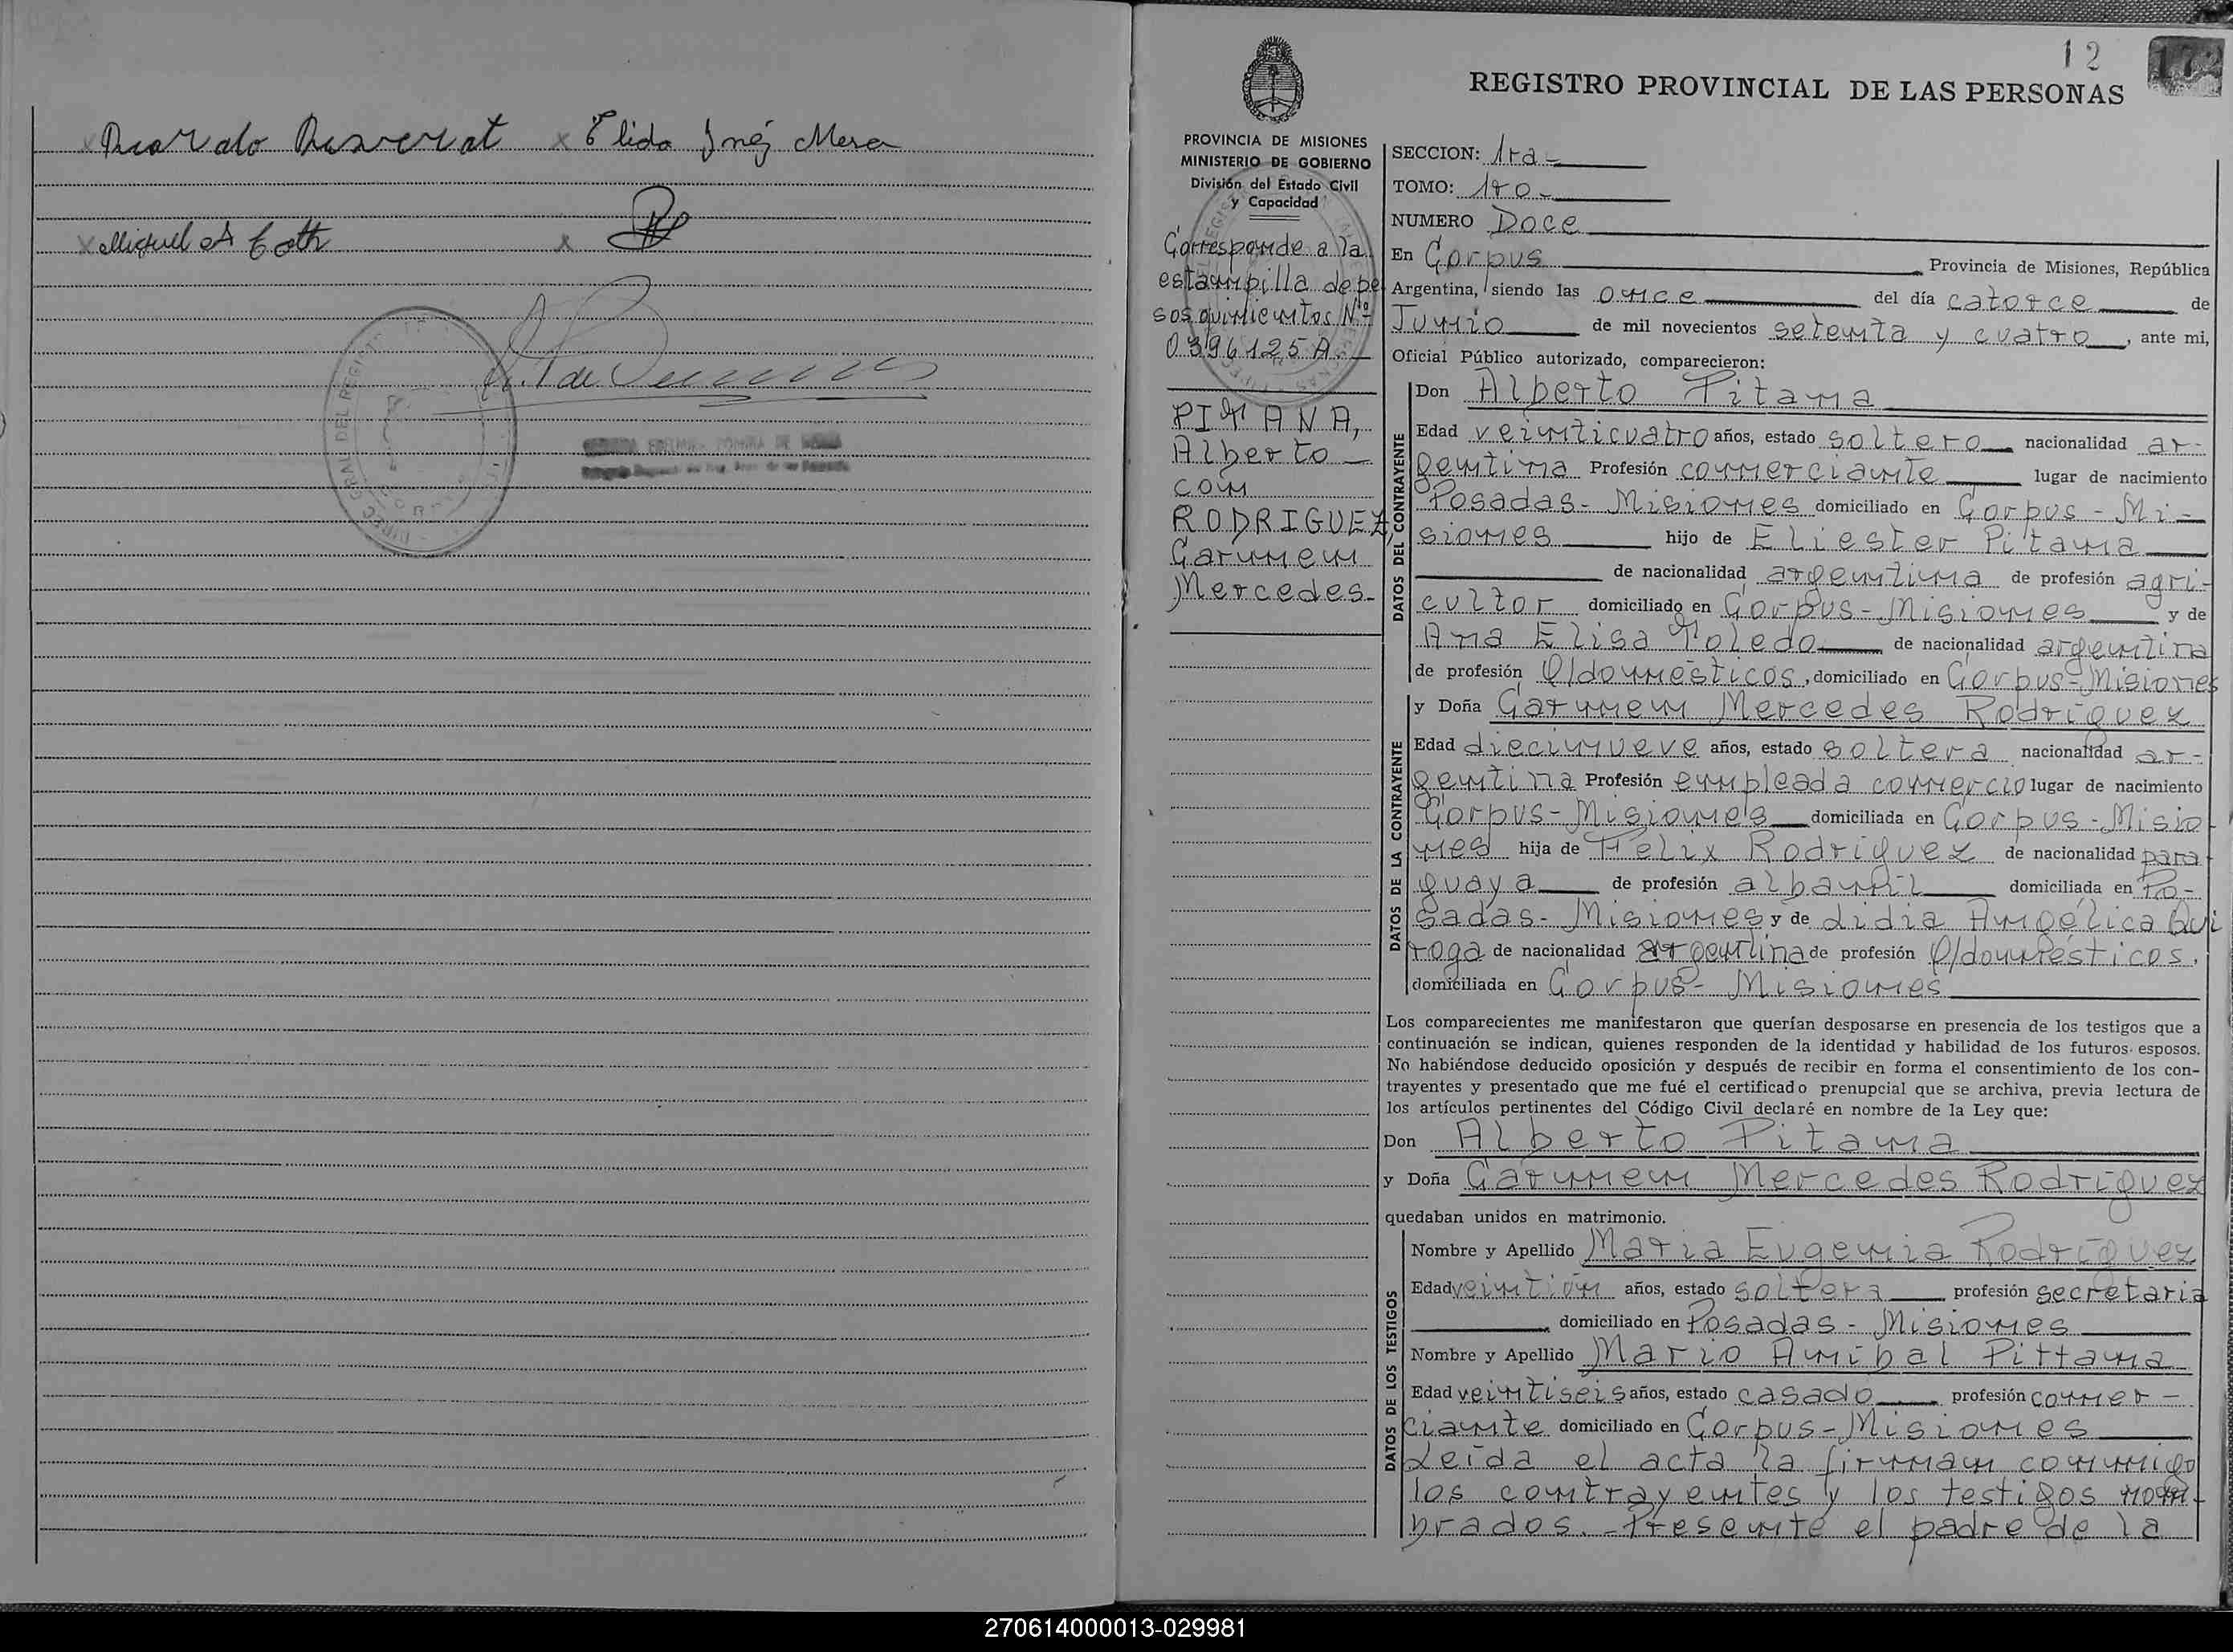 Elida Inés Mesa
Miguel A
12
REGISTRO PROVINCIAL DE LAS PERSONAS
PROVINCIA DE MISIONES
MINISTERIO DE GOBIERNO
División del Estado Civil
y Capacidad
Corresponde a la
estampilla de pe
sos quinientos Nº
0396125 A.-
PITANA,
Alberto
con
RODRIGUEZ,
Carmen
Mercedes.
SECCION: 1ra-
TOMO: 1ro-
NUMERO Doce
En Corpus Provincia de Misiones, República
Argentina, siendo las once del día catorce de
Junio de mil novecientos setenta y cuatro, ante mi,
Oficial Público autorizado, comparecieron:
DATOS DEL CONTRAYENTE
Don Alberto Pitana
Edad veinticuatro años, estado soltero nacionalidad ar-
gentina Profesión comerciante lugar de nacimiento
Posadas- Misiones domiciliado en Corpus - Mi-
siones hijo de Eliester Pitana
de nacionalidad argentina de profesión agri-
cultor domiciliado en Corpus-Misiones y de
Ana Elisa Toledo de nacionalidad argentina
de profesión Q/domésticos, domiciliado en Corpus-Misiones
DATOS DE LA CONTRAYENTE
y Doña Carmen Mercedes Rodríguez
Edad diecinueve años, estado soltera nacionalidad ar-
gentina Profesión empleada comercio lugar de nacimiento
Corpus-Misiones domiciliada en Corpus-Misio
nes hija de Felix Rodríguez de nacionalidad para
guaya de profesión albañil domiciliada en Po-
sadas- Misiones y de Lidia Angélica Qui
roga de nacionalidad argentina de profesión Q/domésticos,
domiciliada en Corpus- Misiones
Los comparecientes me manifestaron que querían desposarse en presencia de los testigos que a
continuación se indican, quienes responden de la identidad y habilidad de los futuros esposos.
No habiéndose deducido oposición y después de recibir en forma el consentimiento de los con-
trayentes y presentado que me fué el certificado prenupcial que se archiva, previa lectura de
los artículos pertinentes del Código Civil declaré en nombre de la Ley que:
Don Alberto Pitana
y Doña Carmen Mercedes Rodríguez
quedaban unidos en matrimonio.
DATOS DE LOS TESTIGOS
Nombre y Apellido Maria Eugenia Rodríguez
Edad veintiún años, estado soltera profesión secretaria
domiciliado en Posadas - Misiones
Nombre y Apellido Mario Anibal Pittana
Edad veintiseis años, estado casado profesión comer-
ciante domiciliado en Corpus-Misiones
Leída el acta la firman conmigo
los contrayentes y los testigos nom-
brados.-Presente el padre de la
270614000013-029981